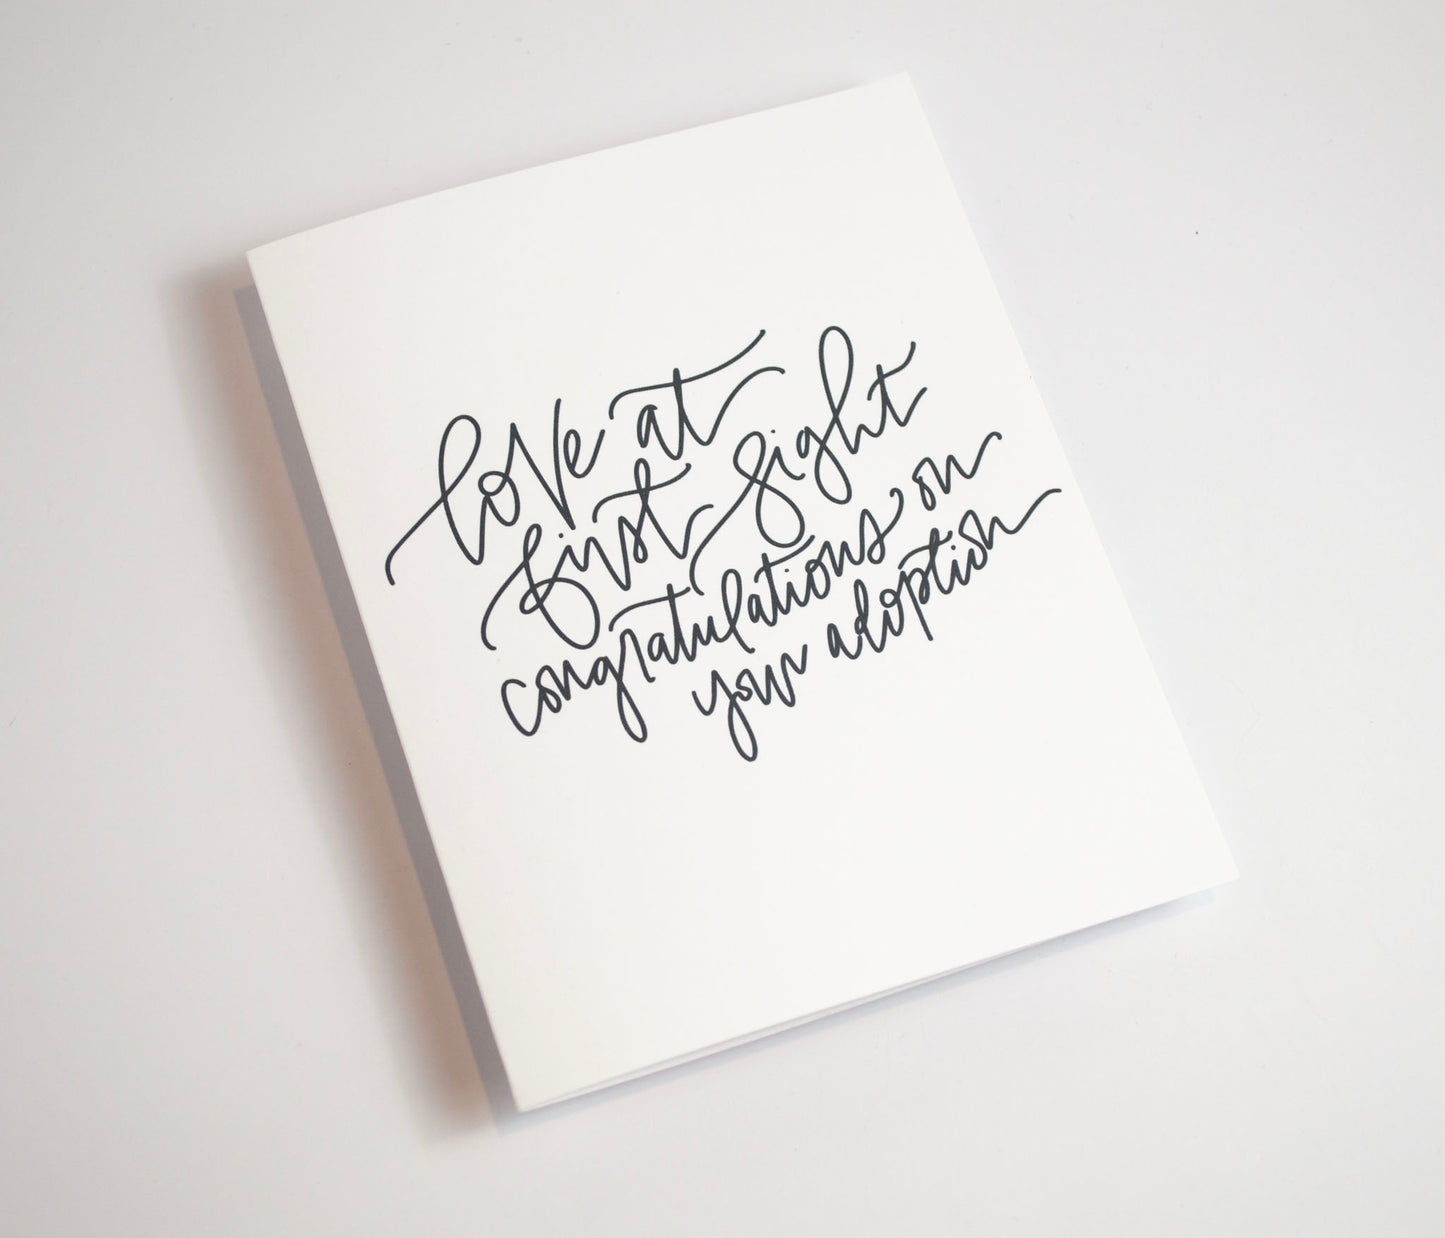 love at
first sight
congratulations on
your adoption